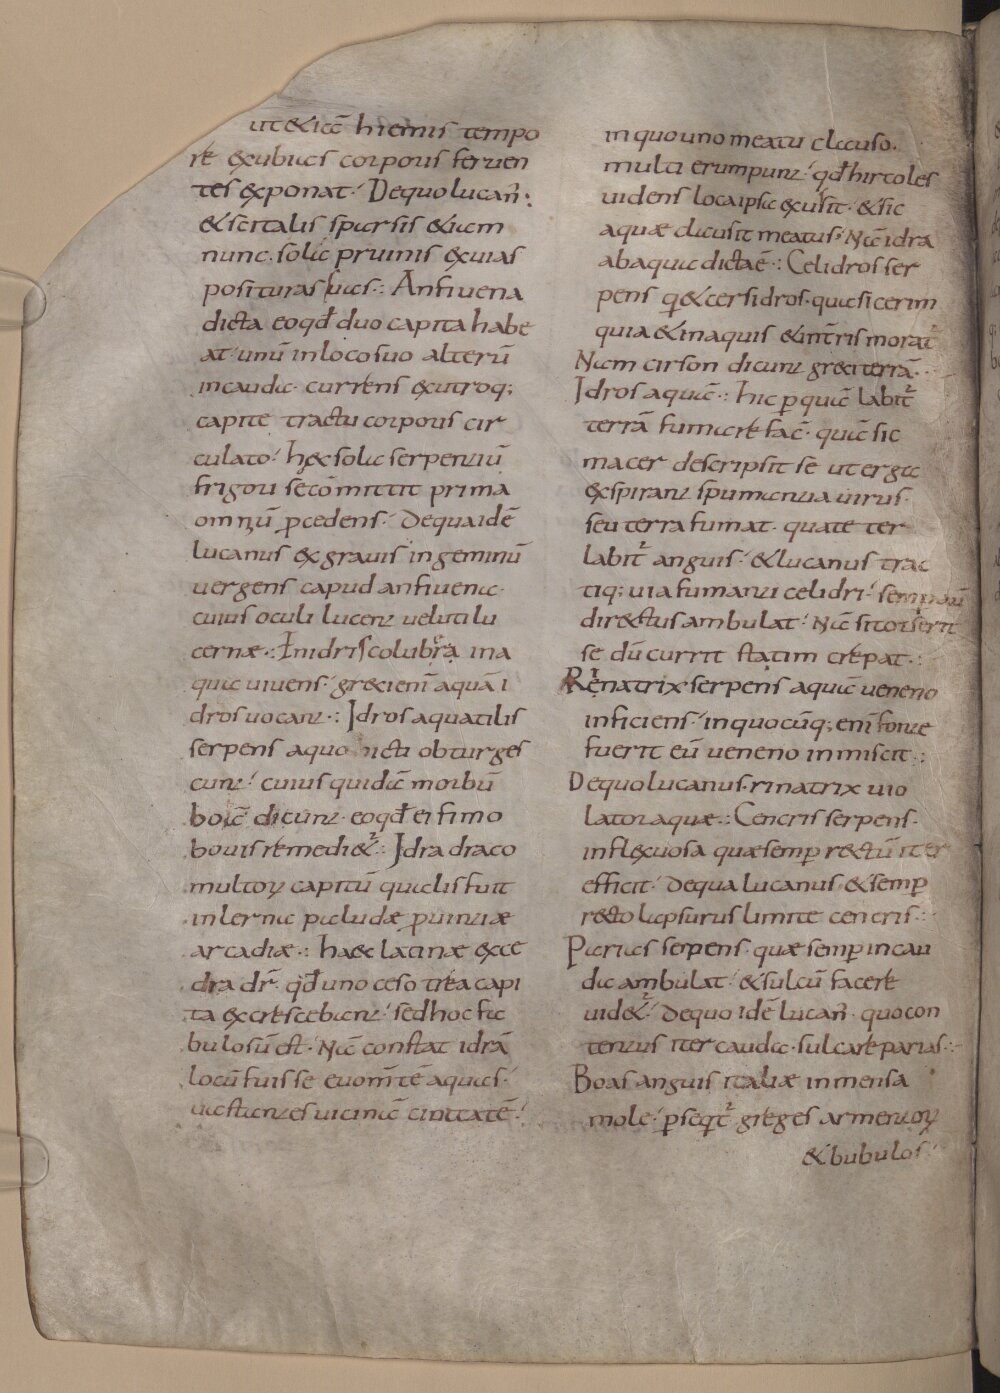 ut & iā hiemis tempo
re exubias corporis feruen
tes exponat. De quo lucan̄.
& scitalis sparsis & iam
nunc. sola pruinis exuias
positura suas. Anfiuena
dicta eo qđ duo capita habe
at. unū in loco suo alterū
in cauda. currens ex utroq;
capite tractu corporis cir
culato. hec sola serpentiū
frigori se cōmittit prima
omniū p̄cedens. De qua idē
lucanus & grauis in geminū
uergens capud anfiuena.
cuius oculi lucent uelut lu
cernæ. Inidris colubra in a
qua uiuens. greci enī aquā i
dros uocant. Idros aquatilis
serpens a quo icti obturges
cunt. cuius quidā morbū
boiā dicunt. eo qđ ei fimo
bouis remedi&ur. Idra draco
multoꝝ capitū qualis fuit
in lerna paludæ prouintiæ
arcadiæ. haec latinæ exce
dra dr̄. qđ uno ceso trea capi
ta excrescebant. sed hoc fa
bulosū est. Nā constat idrā
locū fuisse euomentē aquas.
uastantes uicinā ciuitatē.
in quo uno meatu clauso.
multi erumpunt. qđ hircoles
uidens loca ipsa exusit. & sic
aquæ clausit meatus. Nā idra
ab aqua dicta ē. Celidros ser
pens qui & cersidros. quasi cerim
quia & in aquis & in tr̄ris morat̄
Nam cirson dicunt greci terrā.
Idros aquā. hic p quā labit̄
terrā fumare fac̄. quā sic
macer descripsit seu terga
exspirant spumantia uirus.
seu terra fumat. qua teter
labit̄ anguis. & lucanus trac
tiq; uia fumanti celidri. semp
directus ambulat. Nā si torserit
se dū currit statim crepat.
Renatrix serpens aquā ueneno
inficiens. in quocūq; enī fonte
fuerit eū ueneno inmiscit.
De quo lucanus. rinatrix uio
lator aquæ. Cencris serpens.
inflexuosa quæ semp rectū iter
efficit. De qua lucanus. & semp
recto lapsurus limite cencris.
Parias serpens. quæ semp in cau
da ambulat. & sulcū facere
uid&ur. De quo idē lucan̄. quo con
tentus iter cauda. sulcare parias.
Boas anguis italiæ in mensa
mole. pseqt̄ greges armentoꝝ
& bubulos.